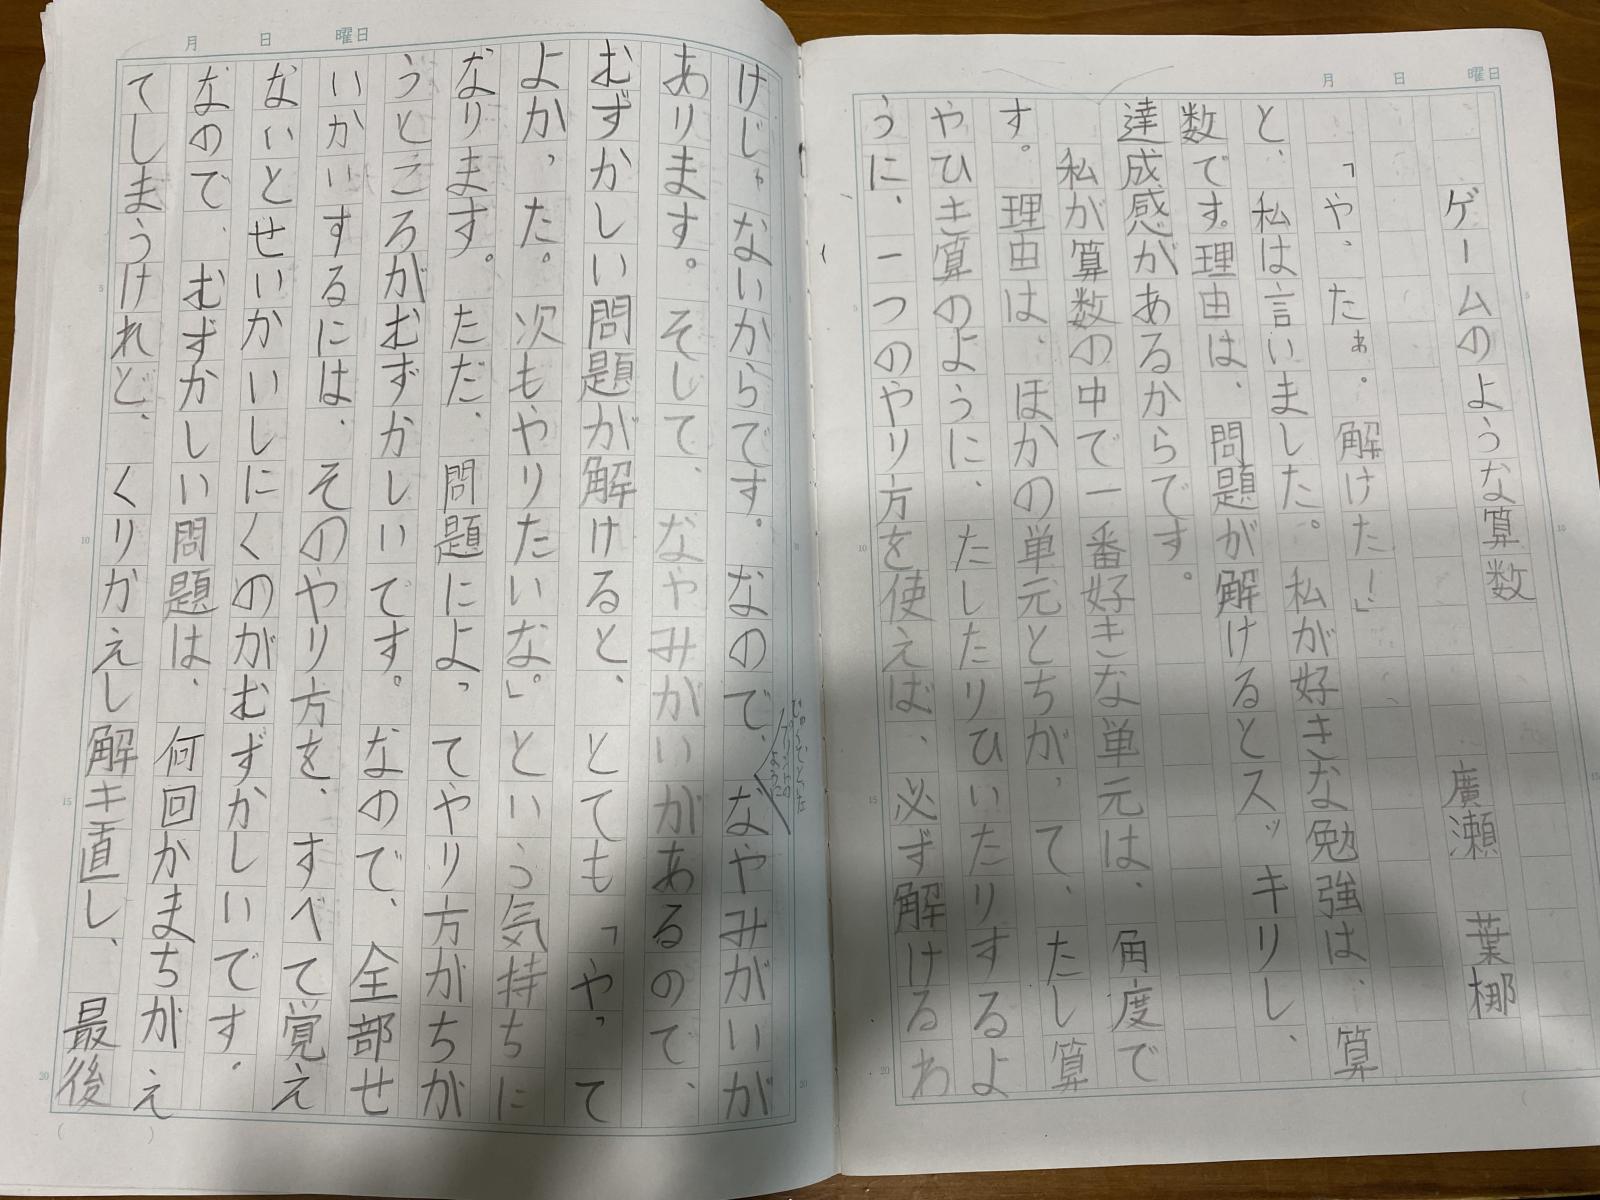 月 日 曜日
ゲームのような算数
廣瀬 葉梛
「やったぁ。解けた!」
と、私は言いました。私が好きな勉強は、算
数です。理由は、問題が解けるとスッキリし、
達成感があるからです。
私が算数の中で一番好きな単元は、角度で
す。理由は、ほかの単元とちがって、たし算
やひき算のように、たしたりひいたりするよ
うに、一つのやり方を使えば、必ず解けるわ
月 日 曜日
けじゃないからです。なので、なやみがいが
あります。そして、なやみがいがあるので、
むずかしい問題が解けると、とても「やって
よかった。次もやりたいな。」という気持ちに
なります。ただ、問題によってやり方がちが
うところがむずかしいです。なので、全部せ
いかいするには、そのやり方を、すべて覚え
ないとせいかいしにくのがむずかしいです。
なので、むずかしい問題は、何回かまちがえ
てしまうけれど、くりかえし解キ直し、最後
プリントの
ように